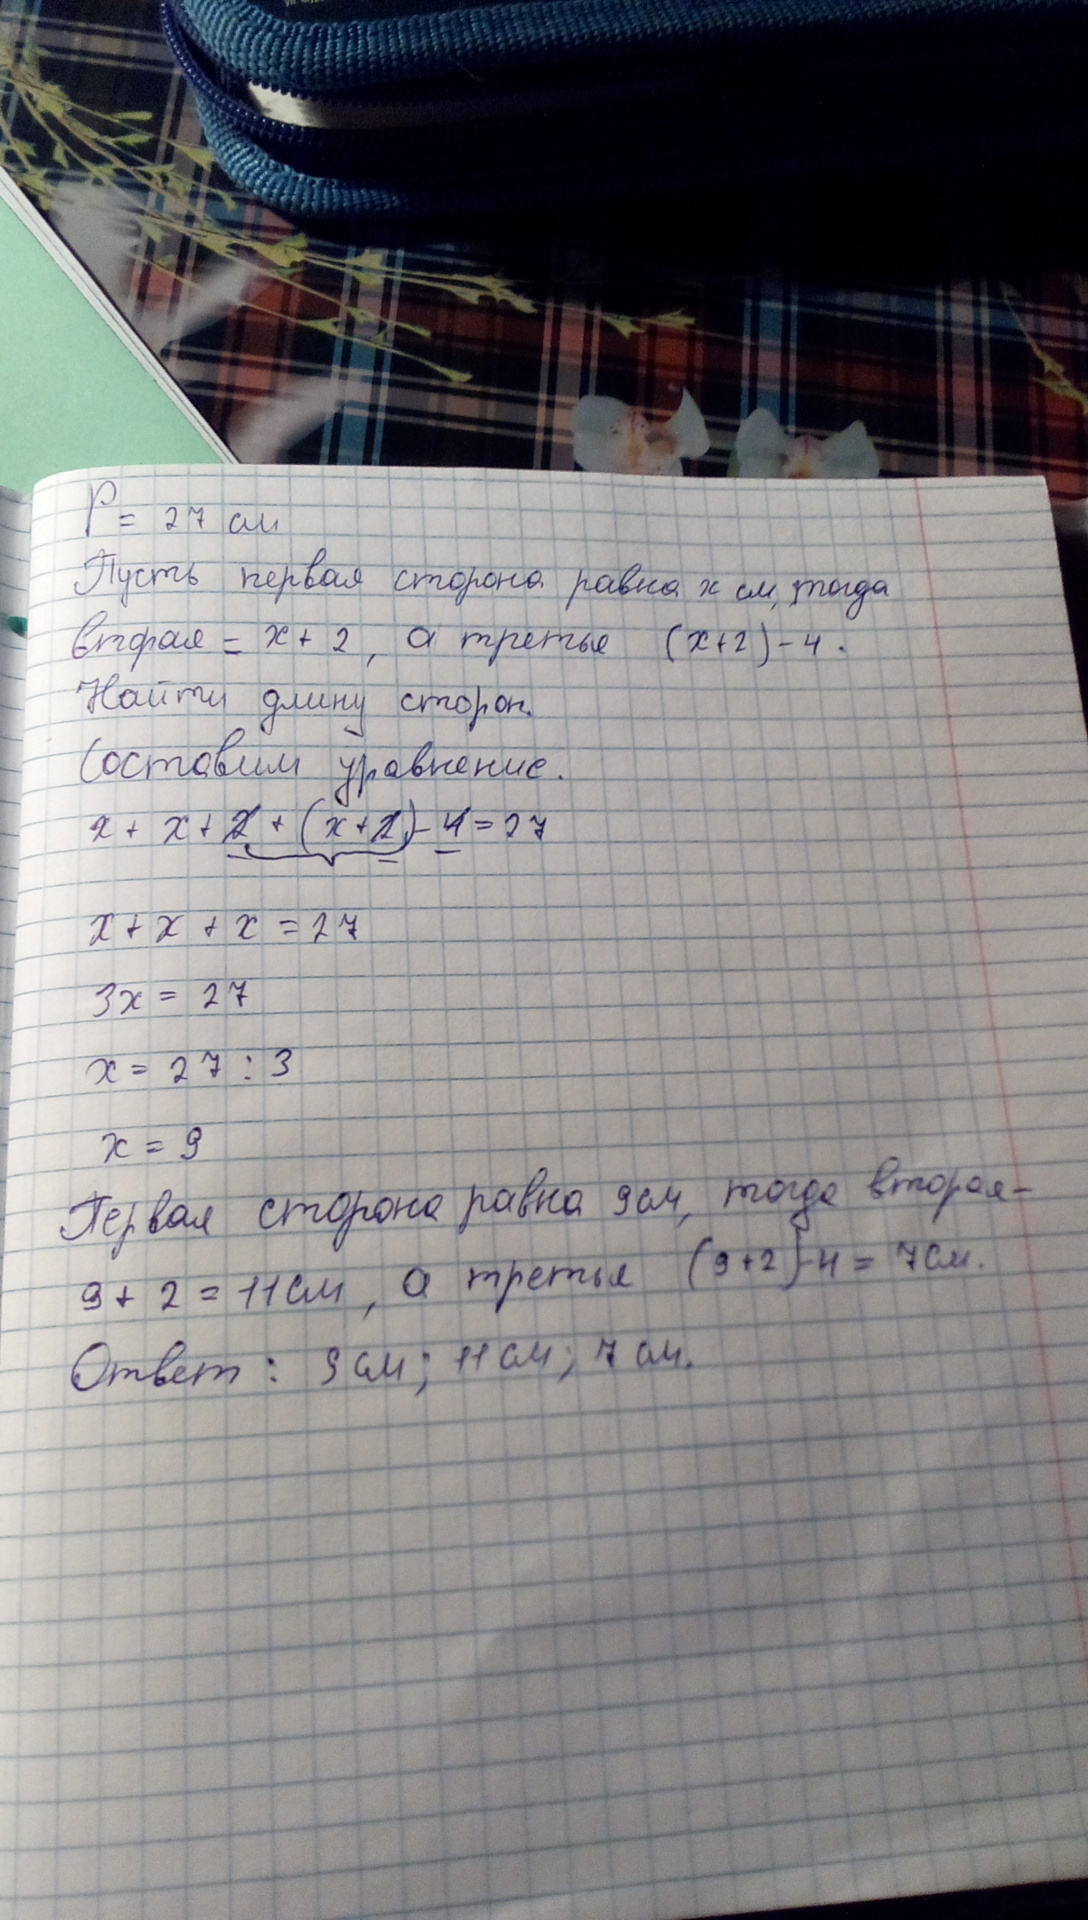 P = 27 см
Пусть первая сторона равна x см, тогда
вторая = x + 2, а третья (x+2)-4.
Найти длину сторон.
Составим уравнение.
x + x + 2 + (x+2) - 4 = 27
x + x + x = 27
3x = 27
x = 27 : 3
x = 9
Первая сторона равна 9см, тогда вторая-
9 + 2 = 11см, а третья (9+2)-4 = 7см.
Ответ: 9см; 11см; 7см.